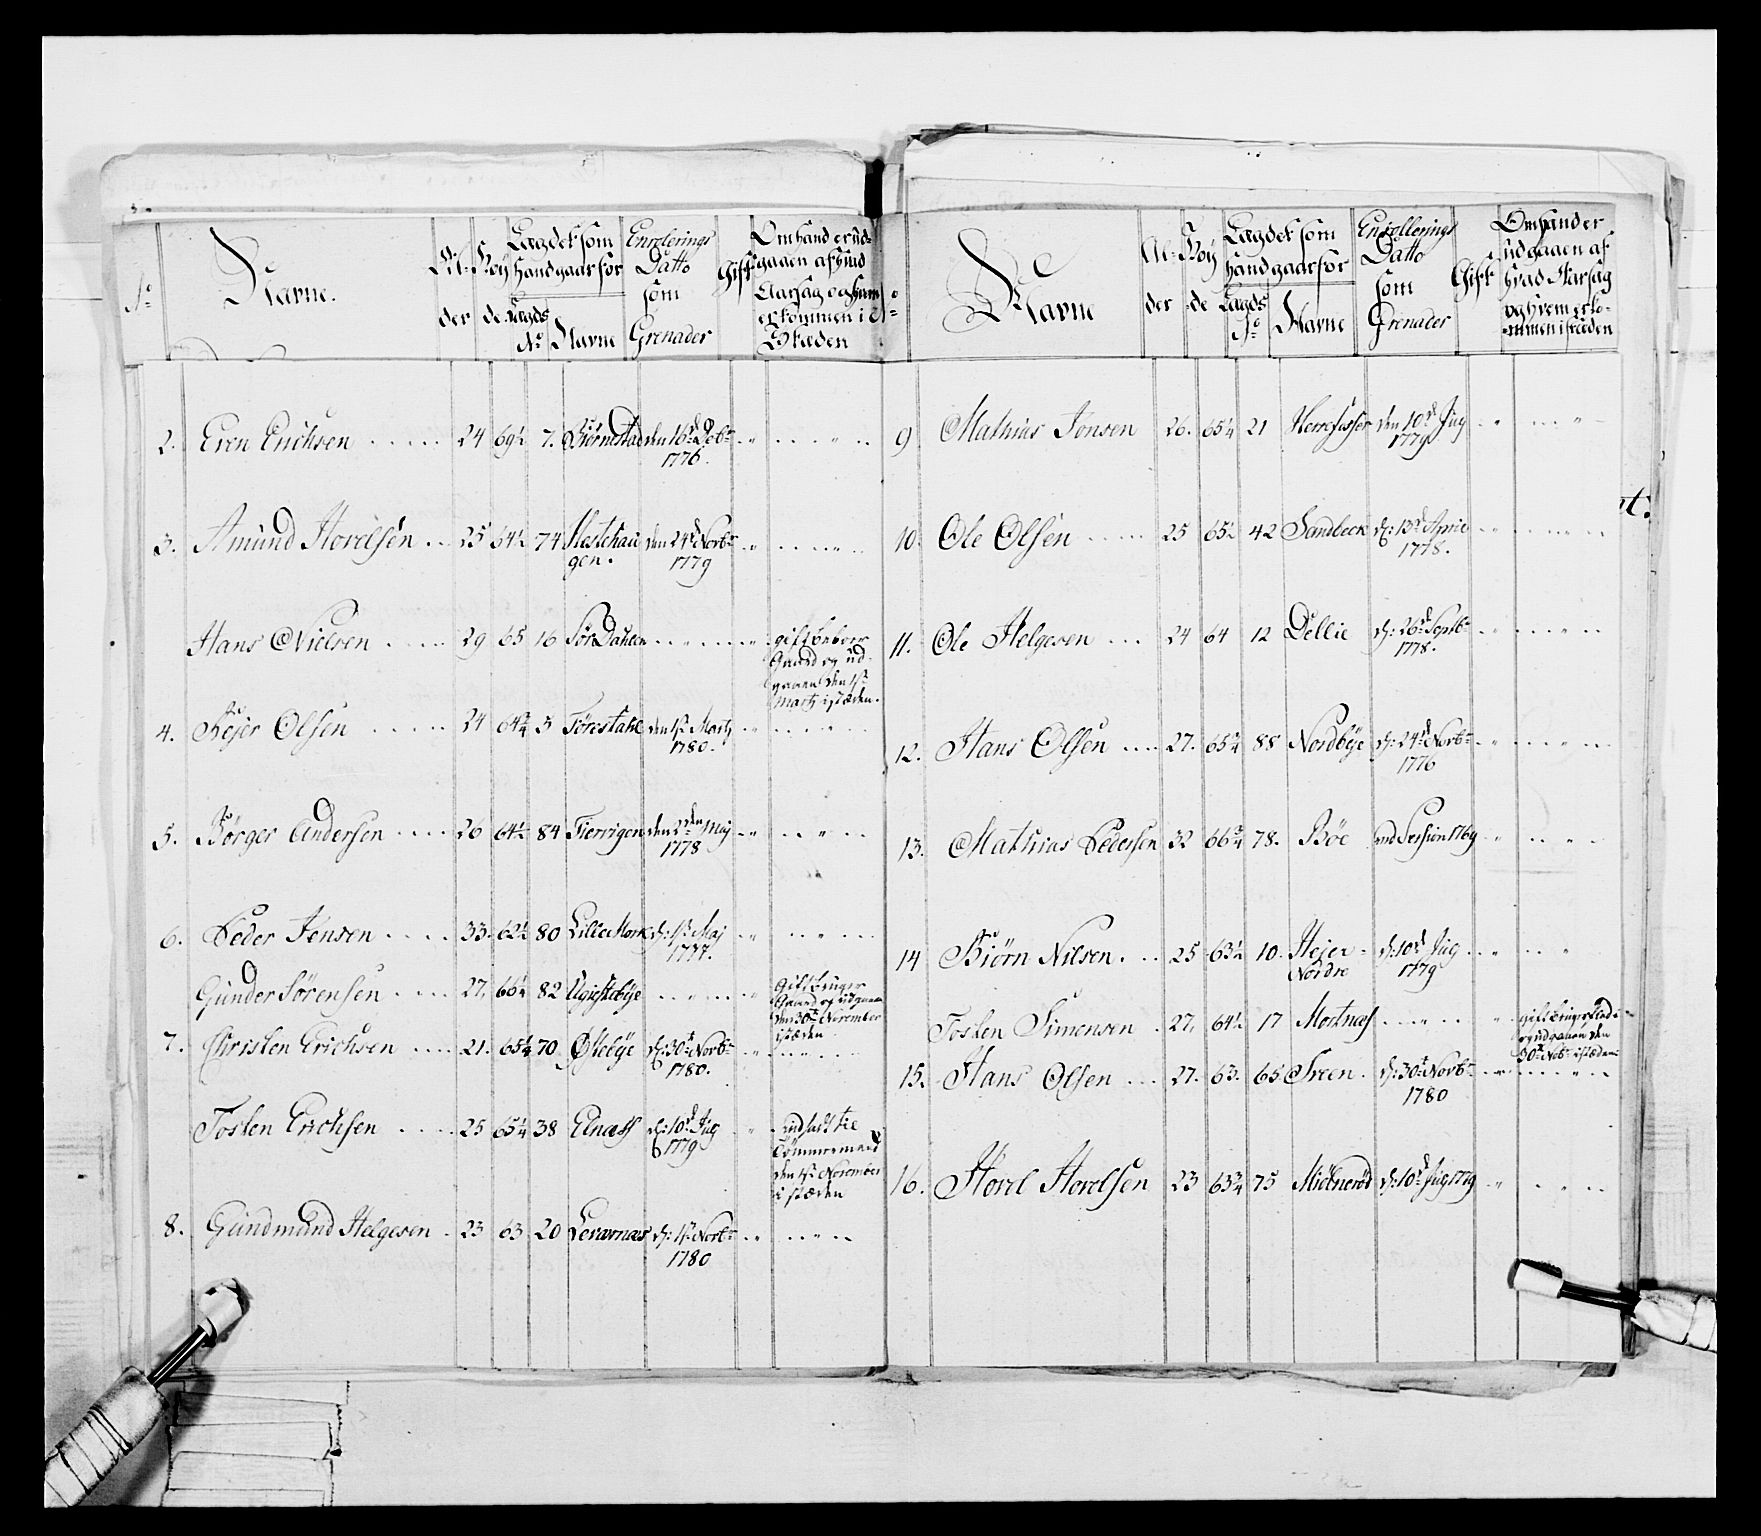 No
Navne.
Al-
der
Höy
de
Lagdet som
hand gaar for
Lagds
No
Navne
Enrolerings
Datto
som
Grenader
Gift
Om hand er ud-
gaaen af hvad
Aarsag og hvem
er kommen i
Stæden
2. Even Erichsen 24 69½ 7. Biørnstad den 16d Feb
1776.
3. Amund Hovelsen 25 64½ 74 Hestehau den 24d Novbr
gen. 1779
Hans Nielsen 29 65 16 Sør Dahlen gift beboer
Gaard og ud-
gaaen den 1st
Martz i stæden.
4. Rejer Olsen 24 64¾ 3 Torestahl den 1st Martz
1780.
5. Börger Andersen 26 64½ 84 Tiervigen den 2den Maj
1778
6. Peder Jensen 33 62½ 80 Lille Mork d: 1st Maj
1777.
Gunder Sörensen 27. 66¼ 82 gift bruger
Gaard og udgaaen
den 30t November
i stæden
7. Christen Erichsen 21. 65¼ 70 Østebye d: 30t Novbr
1780.
Tosten Erichsen 25 65¼ 38 Elnæss d: 10d Jug
1779
udsadt til
Tömmermand
den 1st November
i stæden
8. Gundmund Helgesen 23 63 20 Levernæs d: 1st Novbr
1780
No
Navne
Al-
der
Höy
de
Lagdet som
hand gaar for
Lagds
No
Navne
Enrollerings
Datto
som
Grenader
Gift
Om hand er
udgaaen af
hvad Aarsag
og hvem er ko-
mmen i stæden
9 Mathias Jonsen 26. 65¼ 21 den 10d Jug
1779
10. Ole Olsen 25 65½ 42 Sandbeck d: 13d April
1778.
11. Ole Helgesen 24 64 12 Dellie d: 26d Septbr
1778.
12. Hans Olsen 27. 65¾ 88 Nordbye d: 24d Novbr
1776
13. Mathias Pedersen 32 66¾ 78. Böe ved Session 1769
14 Biörn Nilsen. 25 63½ 10. Hejer- d: 10d Jug
Nordre 1779
Tosten Simensen 27. 64½ 17 Mortnæs gift bruger Stæd
og udgaaen den
30t Nobr i stæden
15. Hans Olsen 27. 63. 65 Sveen. d: 30t Novbr
1780
16. Hovel Hovelsen 23 63¾ 75 Miölneröd d: 10d Jug 1779